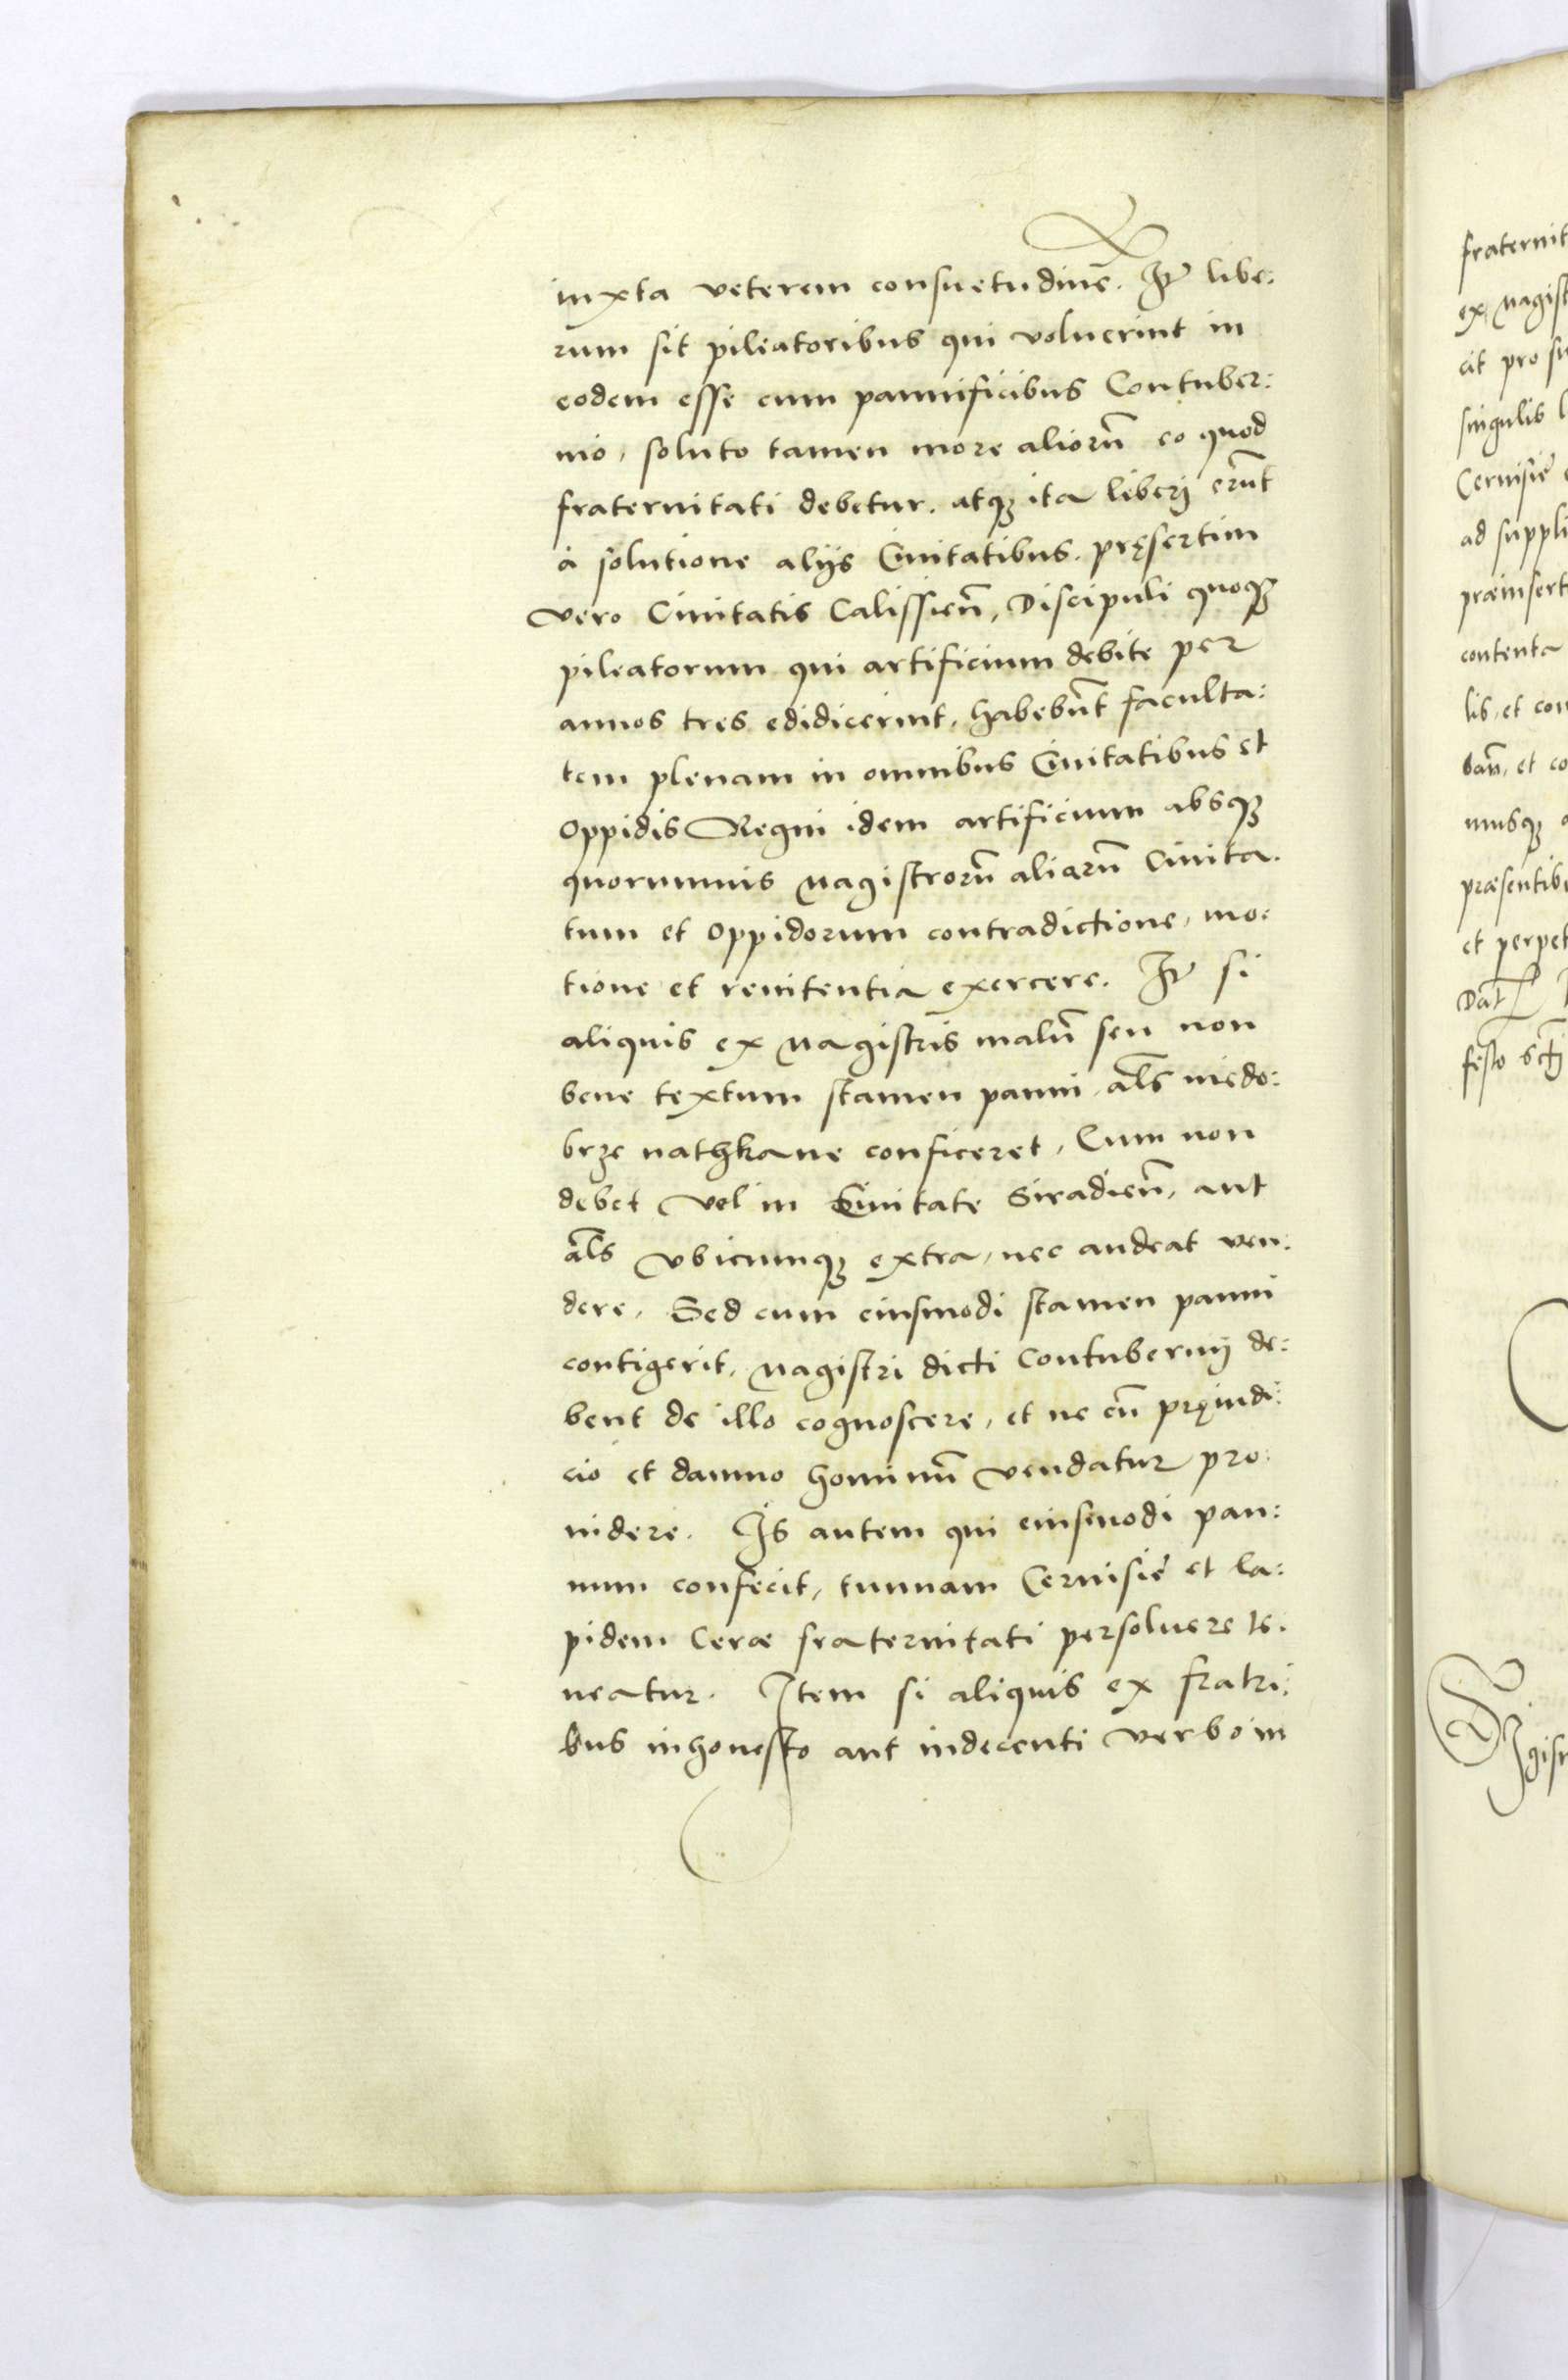 iuxta veterem consuetudinē. Itē libe:
rum sit pileatoribus qui voluerint in
eodem esse cum pannificibus Contuber:
nio, soluto tamen more aliorū eo quod
fraternitati debetur. atqꝫ ita liberj erūt
à solutione alijs Ciuitatibus. pręsertim
vero Ciuitatis Calissieñ, Discipuli quoqꝫ
pileatorum qui artificium debite per
annos tres edidicerint, habebūt faculta:
tem plenam in omnibus Ciuitatibus et
Oppidis Regni idem artificium absqꝫ
quorumuis Magistrorū aliarū Ciuita.
tum et Oppidorum contradictione, mo:
tione et renitentia exercere. Itē si
aliquis ex Magistris malū seu non
bene textum stamen panni, al̄s niedo:
brze nathkane conficeret, Cum non
debet vel in Ciuitate Siradieñ, aut
al̄s vbicumqꝫ extra, nec audeat ven:
dere, Sed cum eiusmodi stamen panni
contigerit, Magistri dicti Contubernij de:
bent de illo cognoscere, et ne cū pręiudi:
cio et damno hominū vendatur pro:
uidere. Is autem qui eiusmodi pan:
num confecit, tunnam Ceruisię et la:
pidem Ceræ fraternitati persoluere te.
neatur. Item si aliquis ex fratri:
bus inhonesto aut indecenti verbo in
fraternit
ex Magist
cit pro su
singulis l
Ceruisię
ad suppli
præinsert
contenta
lis, et con
bañ, et co
musqꝫ
præsentib
et perpet
Dat
festo sctj
Sigis